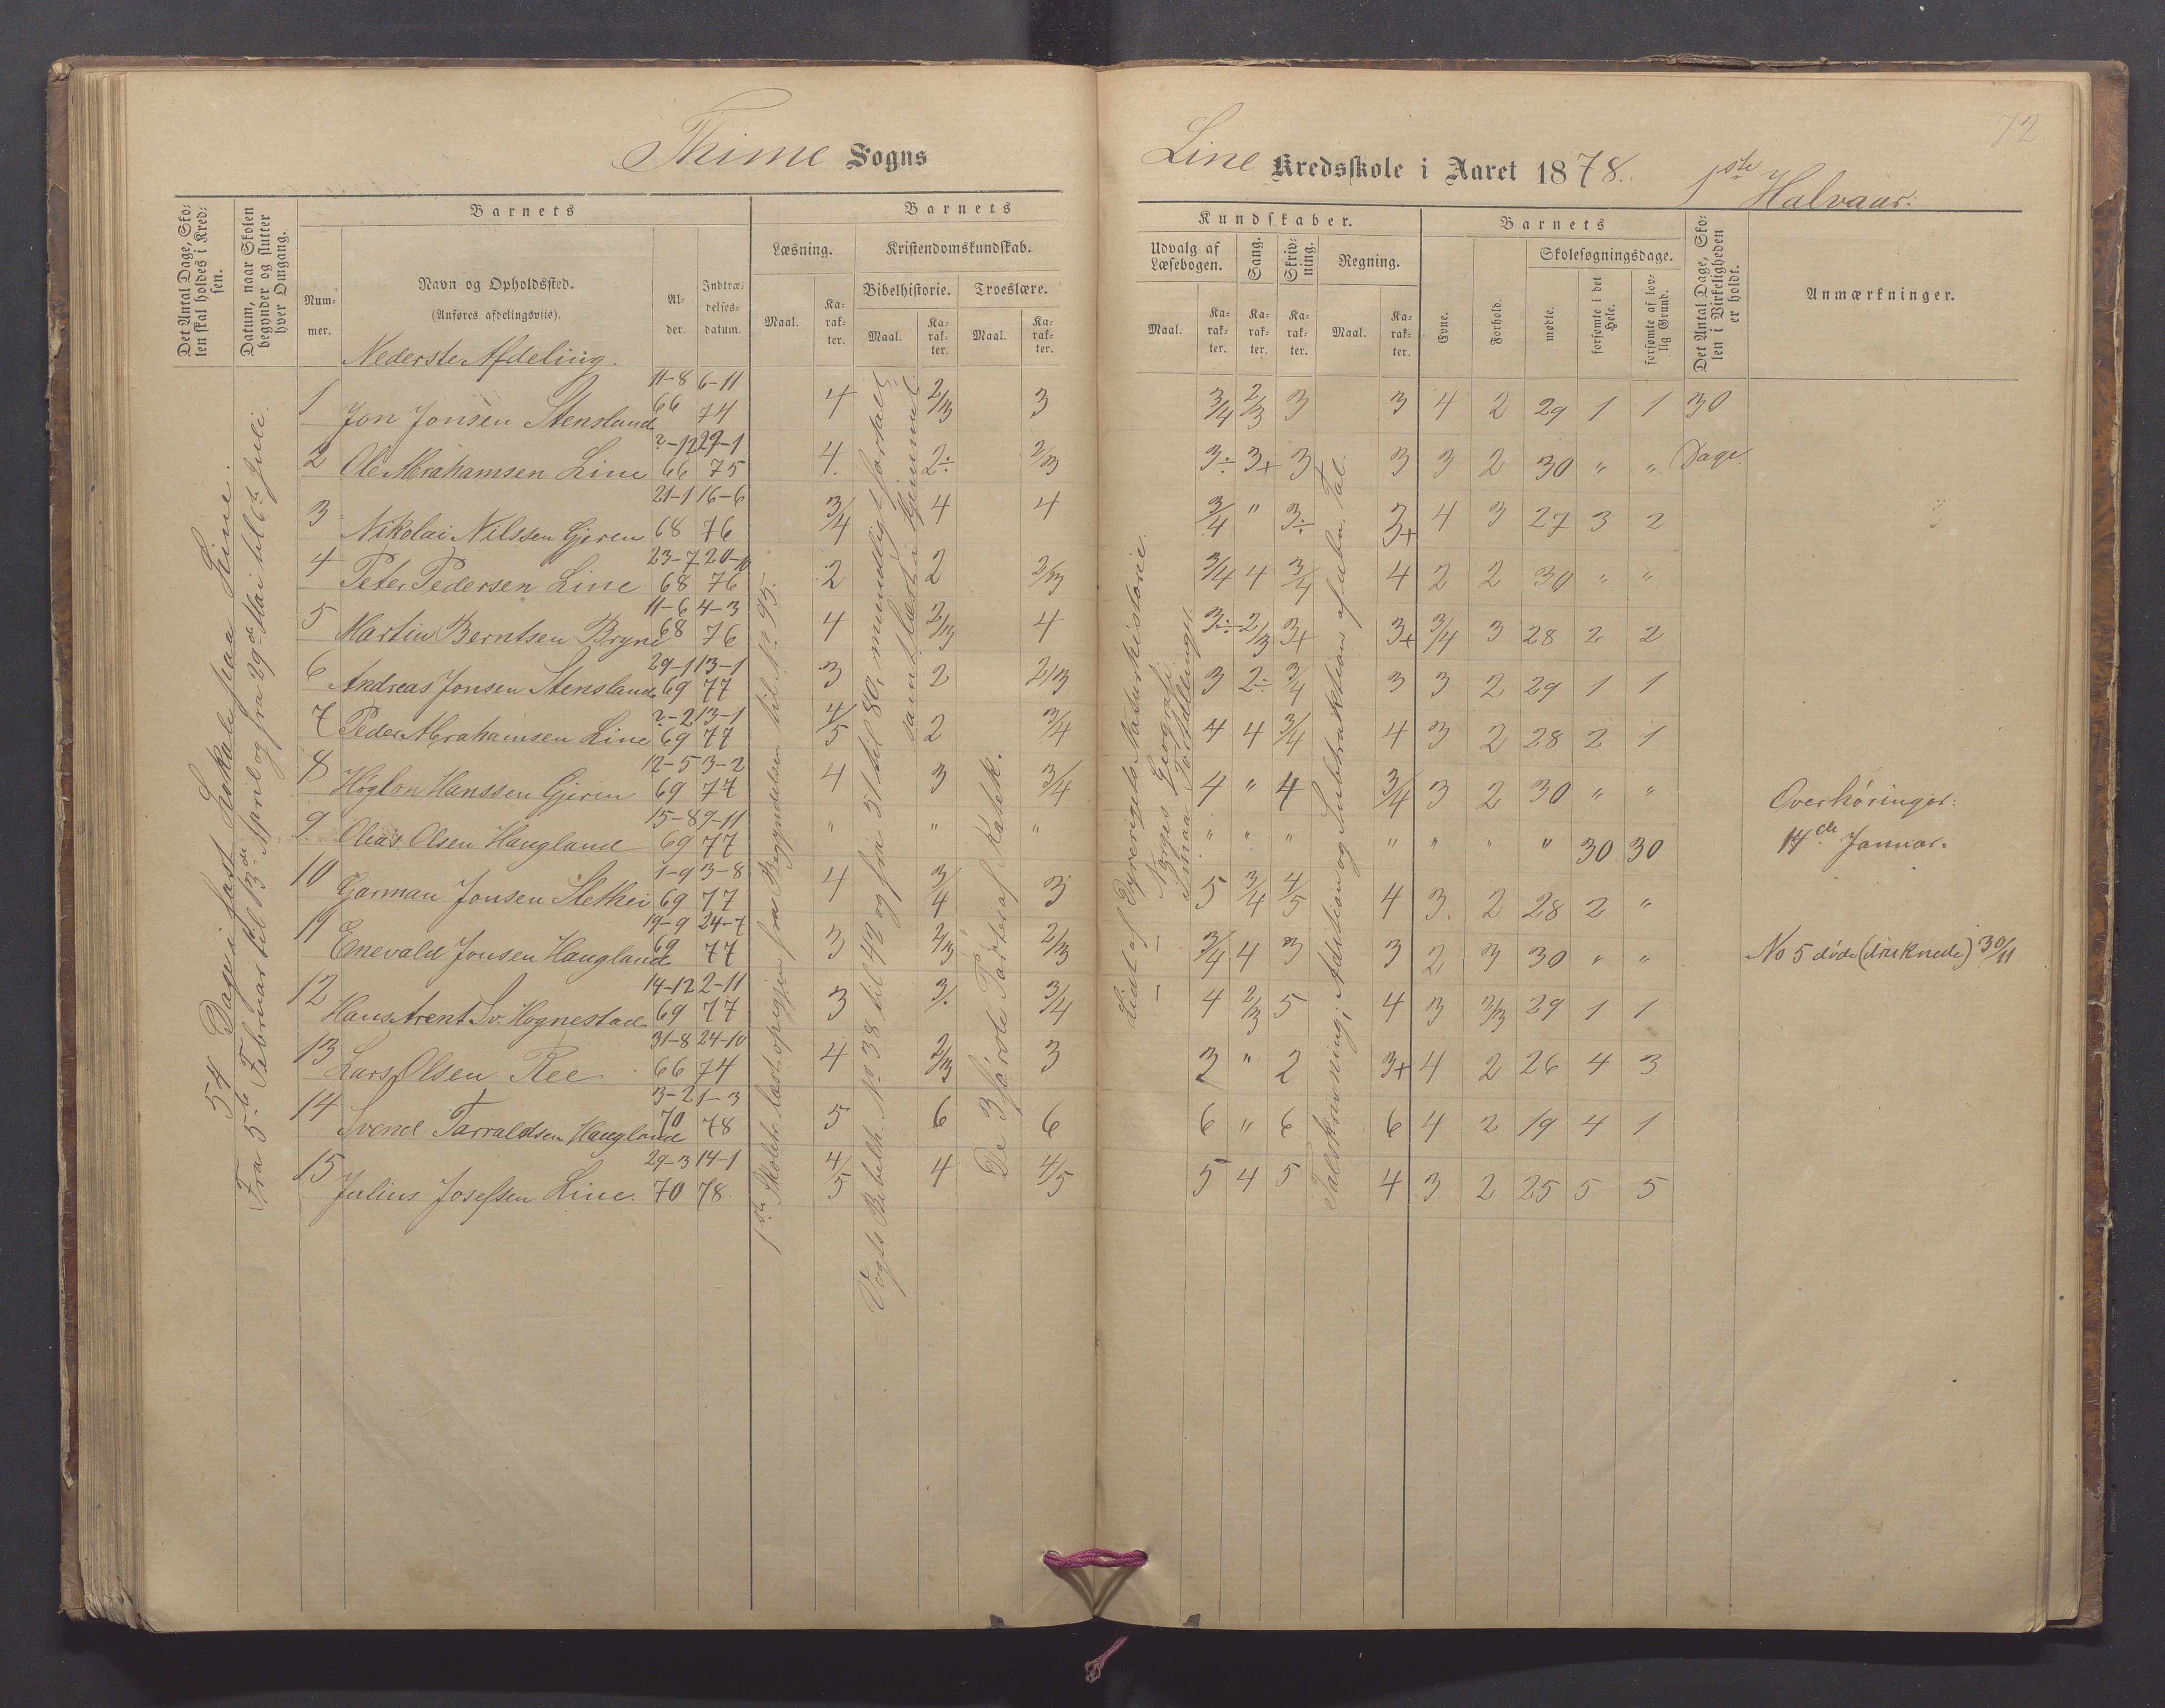 72
Thime Sogns
Line Kredsskole i Aaret 1878. 1ste Halvaar.
Det Antal Dage, Sko-
len skal holdes i Kred-
sen.
Datum, naar Skolen
begynder og slutter
hver Omgang.
Barnets
Num-
mer.
Navn og Opholdssted.
(Anføres afdelingsviis).
Al-
der.
Indtræ-
delses-
datum.
Barnets
Læsning.
Maal.
Ka-
rak-
ter.
Kristendomskundskab.
Bibelhistorie.
Maal.
Ka-
rak-
ter.
Troeslære.
Maal.
Ka-
rak-
ter.
Kundskaber.
Udvalg af
Læsebogen.
Maal.
Ka-
rak-
ter.
Sang.
Ka-
rak-
ter.
Skriv-
ning.
Ka-
rak-
ter.
Regning.
Maal.
Ka-
rak-
ter.
Barnets
Evne.
Forhold.
Skolesøgningsdage.
mødte.
forsømte i det
Hele.
forsømte af lov-
lig Grund.
Det Antal Dage, Sko-
len i Virkeligheden
er holdt.
Anmærkninger.
Nederste Afdeling.
54 Dage i fast Lokale paa Line.
Fra 5te Februar til 13de April og fra 29de Mai til 6te Juli.
1ste Skoletr. læst opigjen fra Begyndelsen til No 95.
Vogts Bibelh. No 38 til 49 og fra 51 til 80, mundligt fortalt
samt læst i Hjemmet.
De 3 første Parter af Katek.
Lidt af Dyrerigets Naturhistorie.
— Norges Geografi.
— Smaa Fortællinger.
Talskrivning; Addition og Subtraktion af ubn. Tal.
1 Jon Jonsen Stensland 11-8 66 6-11 74 4 2/3 3 3/4 2/3 3 3 4 2 29 1 1 30
2 Ole Abrahamsen Line 2-12 66 29-1 75 4. 2÷ 2/3 3÷ 3+ 3 3 3 2 30 " " Dage.
3 Nikolai Nilssen Gjeren 21-1 68 16-6 76 3/4 4 4 3/4 " 3÷ 3+ 4 3 27 3 2
4 Peter Pedersen Line 23-7 68 20-10 76 2 2 2/3 3/4 4 3/4 4 2 2 30 " "
5 Martin Berntsen Bryne 11-6 68 4-3 76 4 2/3 4 3÷ 2/3 3+ 3+ 3/4 3 28 2 2
6 Andreas Jonsen Stensland 29-1 69 13-1 77 3 2 2/3 3 2÷ 3/4 3 3 2 29 1 1
7 Peder Abrahamsen Line 2-2 69 13-1 77 4/5 2 3/4 4 4 3/4 4 3 2 28 2 1
8 Høglon Hanssen Gjeren 12-5 69 3-2 77 4 3 3/4 4 " 4 3/4 3 2 30 " " Overhøringer:
9 Olias Olsen Haugland 15-8 69 9-11 77 " " " " " " " " " " 30 30 14de Januar.
10 Garman Jonsen Slethei 1-9 69 3-8 77 4 3/4 3 5 3/4 4/5 4 3. 2 28 2 "
11 Enevald Jonsen Haugland 19-9 69 24-7 77 3 2/3 2/3 3/4 4 3 3 2 3 30 " " No 5 døde (druknede) 30/11
12 Hans Arent Sv. Høgnestad 14-12 69 2-11 77 3 3. 3/4 4 2/3 5 4 3 2/3 29 1 1
13 Lars Olsen Ree 31-8 66 24-10 74 4 2/3 3 3 " 2 3+ 4 2 26 4 3
14 Svend Tarraldsen Haugland 3-2 70 1-3 78 5 6 6 6 " 6 6 4 2 19 4 1
15 Julius Josefsen Line. 29-3 70 14-1 78. 4/5 4 4/5 5 4 5 4 3 2 25 5 5